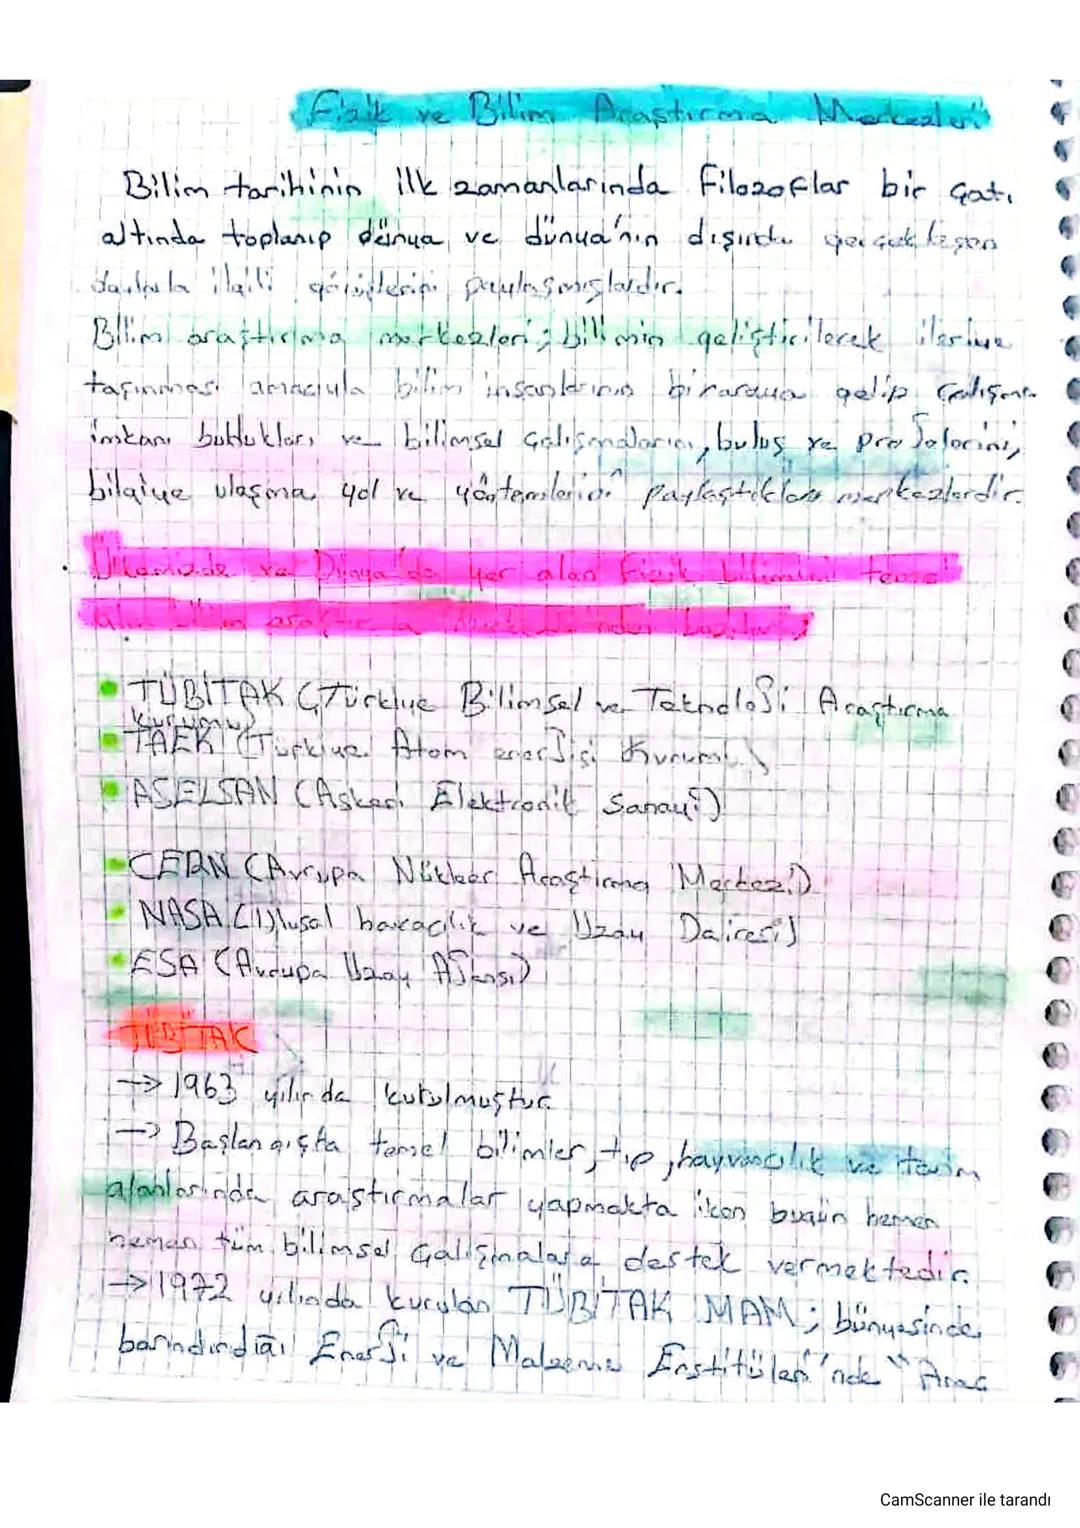 Fizik ve Bilim Araştırma Merkezleri
Bilim tarihinin ilk zamanlarında filozoflar bir çatı
altında toplanıp dünya ve dünya'nın dışında gerçekleşen
olaylarla ilgili görüşlerini paylaşmışlardır.
Bilim araştırma merkezleri; bilimin geliştirilerek ileriye
taşınması amacıyla bilim insanlarının biraraya gelip çalışma
imkanı buldukları ve bilimsel çalışmalarını, buluş ve projelerini,
bilgiye ulaşma yol ve yöntemlerini paylaştıkları merkezlerdir.
Ülkemizde ve Dünya'da yer alan fizik bilimini temel
alan bilim araştırma
TÜBİTAK (Türkiye Bilimsel ve Teknoloji Araştırma
kurumu)
TAEK (Türkiye Atom enerjisi Kurumu)
ASELSAN (Askeri Elektronik Sanayi)
CERN (Avrupa Nükleer Araştırma Merkezi)
NASA (Ulusal havacılık ve Uzay Dairesi)
ESA (Avrupa Uzay Ajansı)
TÜBİTAK
→ 1963 yılında kurulmuştur.
→ Başlangıçta temel bilimler, tıp, hayvancılık ve tarım
alanlarında araştırmalar yapmakta iken bugün hemen
hemen tüm bilimsel çalışmalara destek vermektedir.
→ 1972 yılında kurulan TÜBİTAK MAM; bünyesinde
barındırdığı Enerji ve Malzeme Enstitüleri'nde "Araç
CamScanner ile tarandı